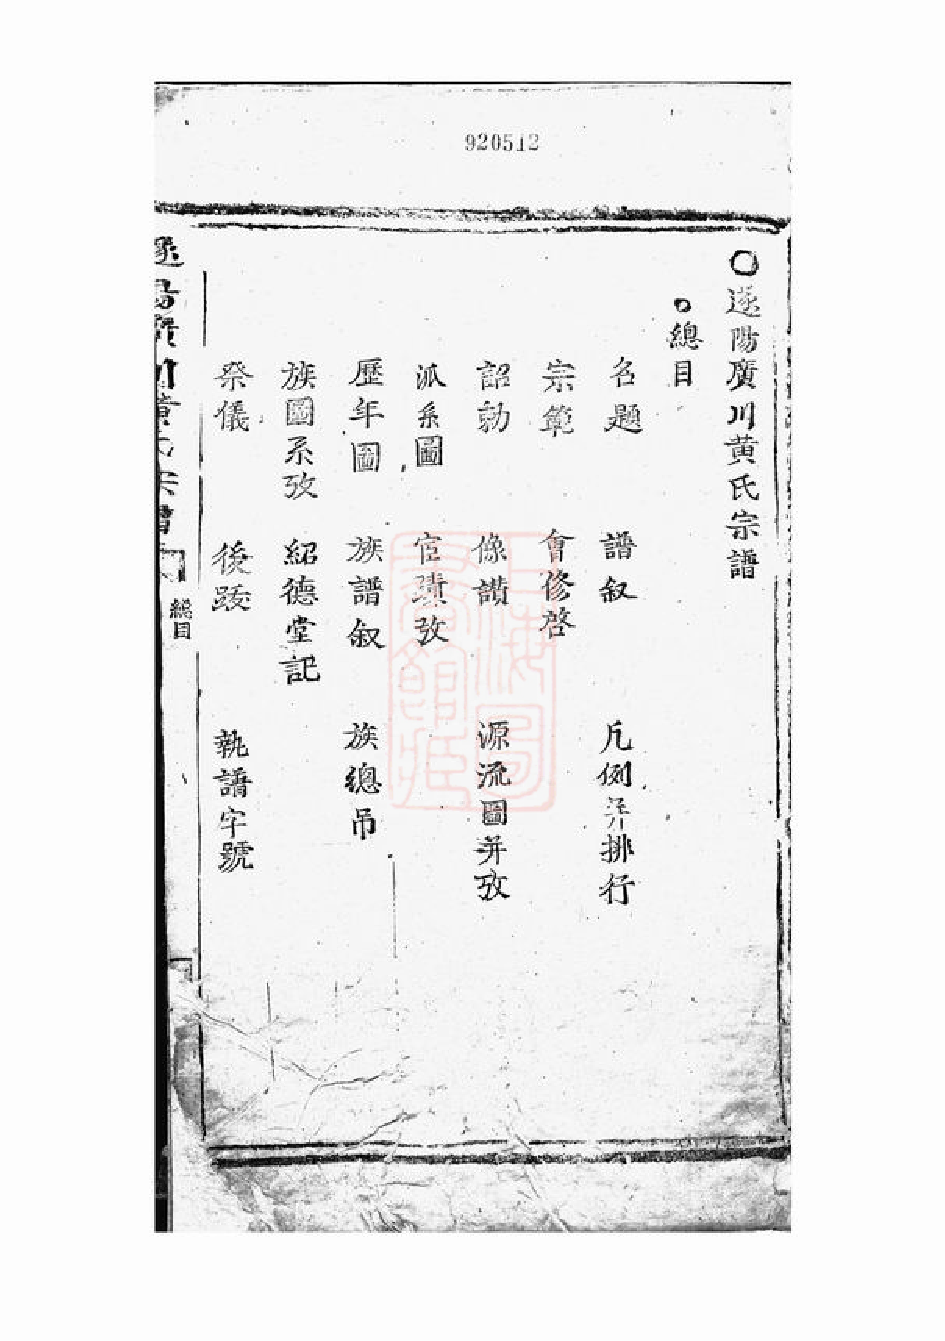 920512
○遂陽廣川黄氏宗譜
○總目
名題 譜叙 凡例并排行
宗範 會修啓
詔勅 像讃 源流圖并攷
派系圖 宦蹟攷
歷年圖 族譜叙 族總吊
族圖系攷 紹德堂記
祭儀 後跋 執譜字號
總目
上海圖書館藏